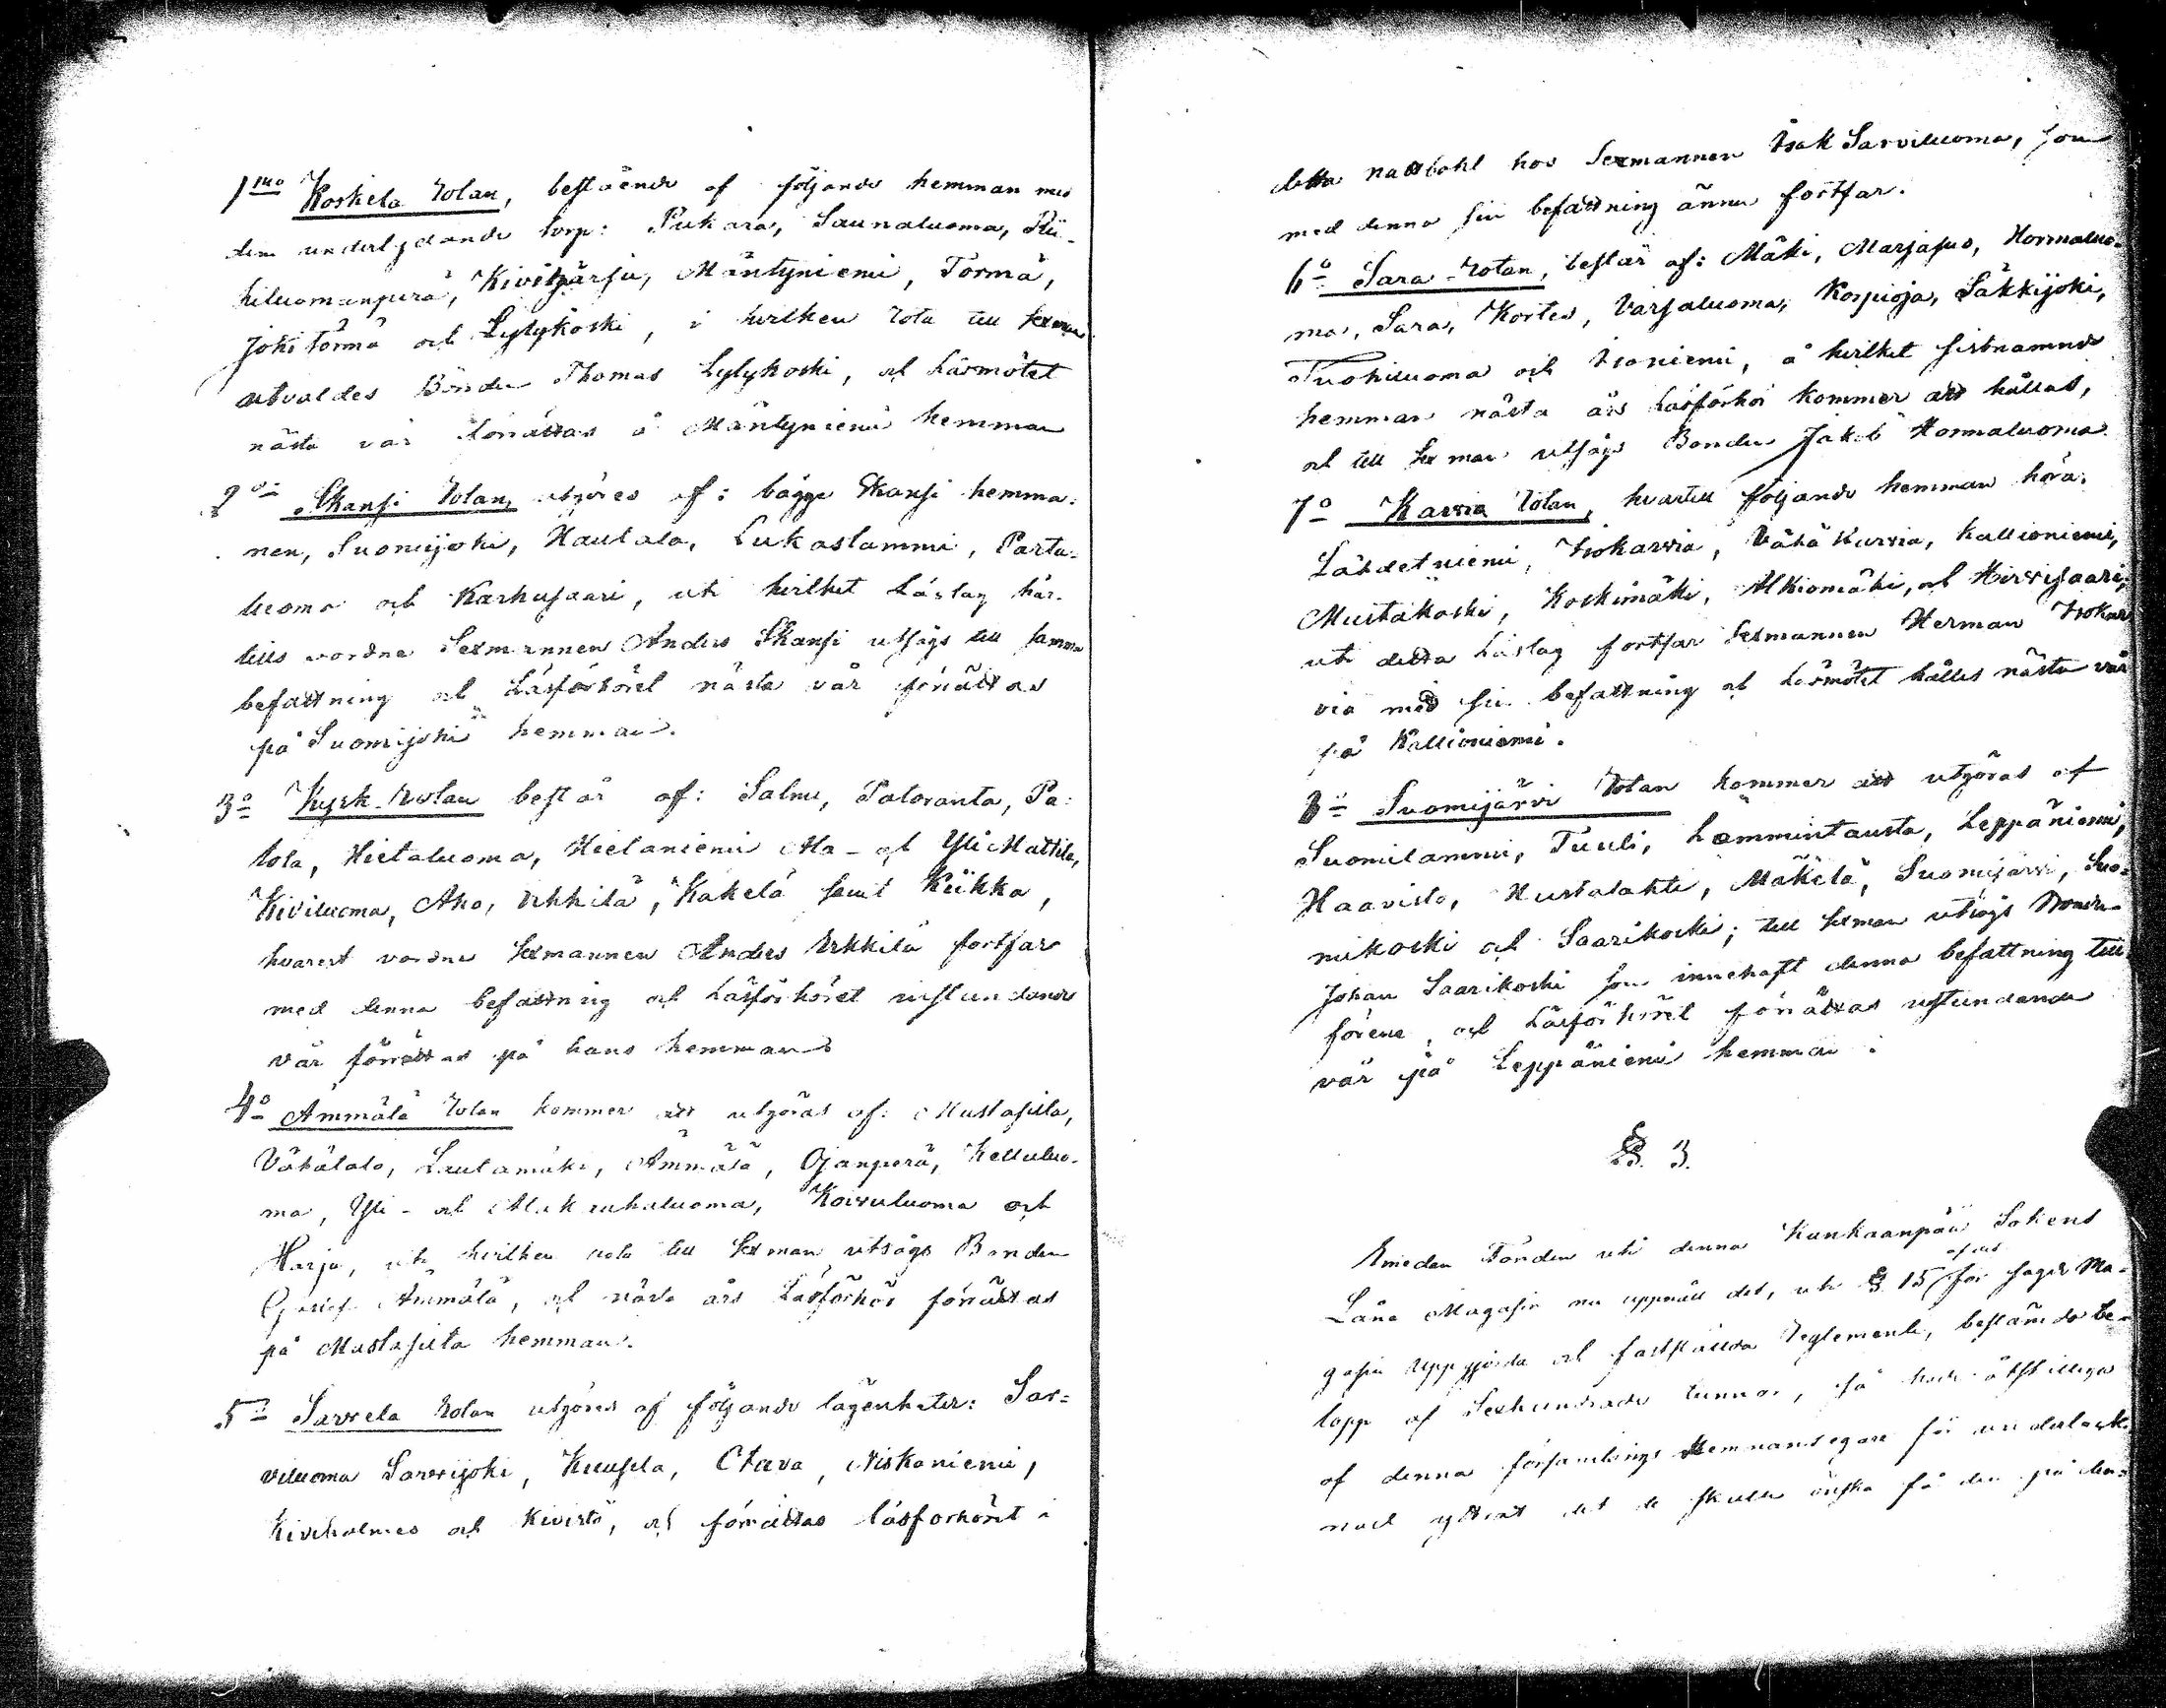 1mo Koskela Rotan, bestående af följande hemman med
dem underlydande torp: Pukara, Saunaluoma, Rii-
hiluomanperä, Kivitzärju, Mäntyniemi, Törmä,
Jokitörmä och Lylykoski, i hvilken Rota till sexman
utvaldes Bonden Thomas Lylykoski, och Läsmötet
nästa vår förrättas å Mäntyniemi hemman
2o Skansi Rotan, utgöres af: bägge Skansi hemma-
nen, Suomijoki, Hautala, Lukaslammi, Parta-
luoma och Karhusaari, uti hvilket Läslag här-
tills vordne Sexmannen Anders Skansi utsågs till samma
befattning och Läsförhöret nästa vår förrättas
på Suomijoki hemman.
3o Kyrk-Rotan består af: Salmi, Paloranta, Pa-
tola, Hietaluoma, Hietaniemi Ala- och Yli Mattila,
Kiviluoma, Aho, Erkkilä, Kakelä samt Kiikka,
hvarest vordne Sexmannen Anders Erkkilä fortfar
med denna befattning och Läsförhöret instundande
vår förrättas på hans hemman
4o Ämmälä Rotan kommer att utgöras af: Mustasilta,
Vähätalo, Lautamäki, Ämmälä, Ojanperä, Kelluluo-
ma, Yli- och Ala Kauhaluoma, Koivuluoma och
Harju, uti hvilken rota till Sexman utsågs Bonden
Gustaf Ämmälä, och nästa års Läsförhör förrättas
på Mustasilta hemman.
5o Sarvela Rotan utgöres af följande lägenheter: Sar-
viluoma Sarvijoki, Kuusela, Otava, Niskaniemi,
Kiviholmes och Kivistö, och förrättas läsförhöret i
detta hos Sexmannen Isak Sarviluoma, som
med denna sin befattning ännu fortfar.
6o Sara-Rotan, består af: Mäki, Marjasuo, Hormaluo-
ma, Sara, Kortes, Varjaluoma, Korpioja, Säkkijoki,
Tuohiluoma och Isoniemi, å hvilket sistnämnde
hemman nästa års Läsförhör kommer att hållas,
och till Sexman utsågs Bonden Jakob Hormaluoma.
7o Karvia Rotan, hvartill följande hemman höra:
Lähdetniemi, Isokarvia, Vähäkarvia, Kallioniemi,
Mustakoski, Koskimäki, Alkiomäki, och Hirvisaari;
uti detta Läslag fortfar Sexmannen Herman Isokar
via med sin befattning och Läsmötet hålles nästa vår
på Kallioniemi.
8o Suomijärvi Rotan kommer att utgöras af
Suomilammi, Tuuli, Lammintausta, Leppäniemi,
Haavisto, Hustalahti, Mäkelä, Suomijärvi, Suo-
mikoski och Saarikoski; till Sexman utsågs Bonden
Johan Saarikoski som innehaft denna befattning till-
förene, och Läsförhöret förrättas instundande
vår på Leppäniemi hemman.
§ 3.
Emedan Fonden uti denna Kankaanpää Sokens
Låne Magasin nu uppnått det, uti § 15 af det för sagde Ma-
gasin uppgjorda och fastställda Reglemente, bestämda be-
lopp af Sexhundrade tunnor, så hade åtskillige
af denna församlings Hemmansegare för undertecknad
yttrat det de skulle önska få den på den-